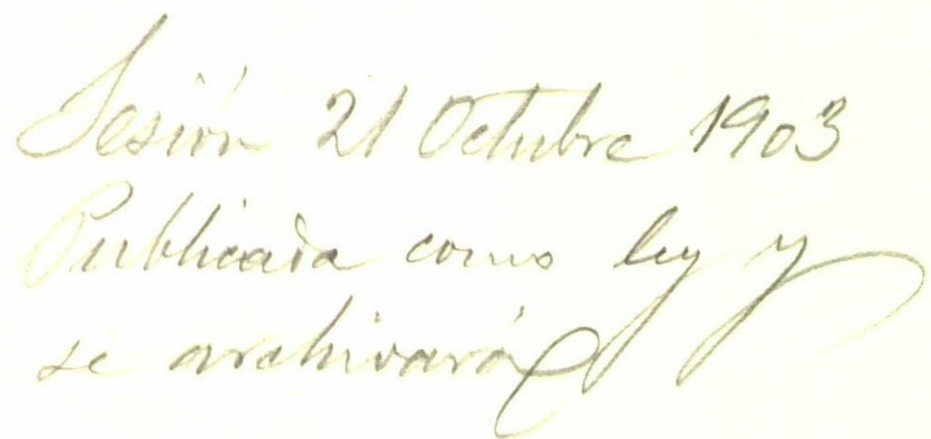 Sesión 21 Octubre 1903
Publicada como ley y
se archivará